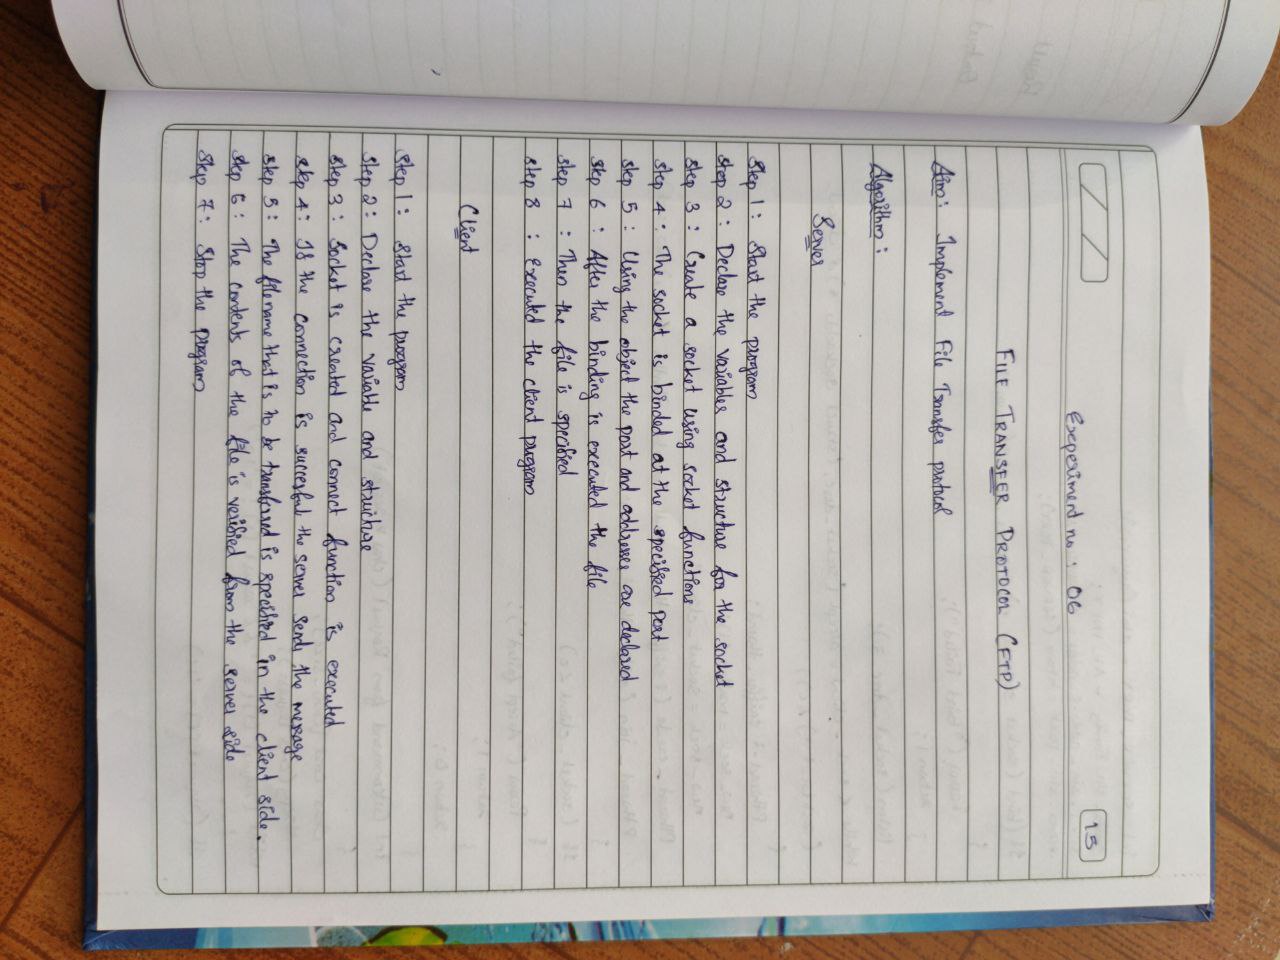 15
Experiment no: 06
FILE TRANSFER PROTOCOL (FTP)
Aim: Implement File Transfer protocol
Algorithm:
Server
Step 1: Start the program
Step 2: Declare the variables and structure for the socket
Step 3: Create a socket using socket functions
Step 4: The socket is binded at the specified port
Step 5: Using the object the port and addresses are declared
Step 6: After the binding is executed the file
Step 7: Then the file is specified
Step 8: executed the client program
Client
Step 1: Start the program
Step 2: Declare the variable and structure
Step 3: Socket is created and connect function is executed
Step 4: If the connection is successful the server sends the message
Step 5: The filename that is to be transferred is specified in the client side.
Step 6: The contents of the file is verified from the server side
Step 7: Stop the program